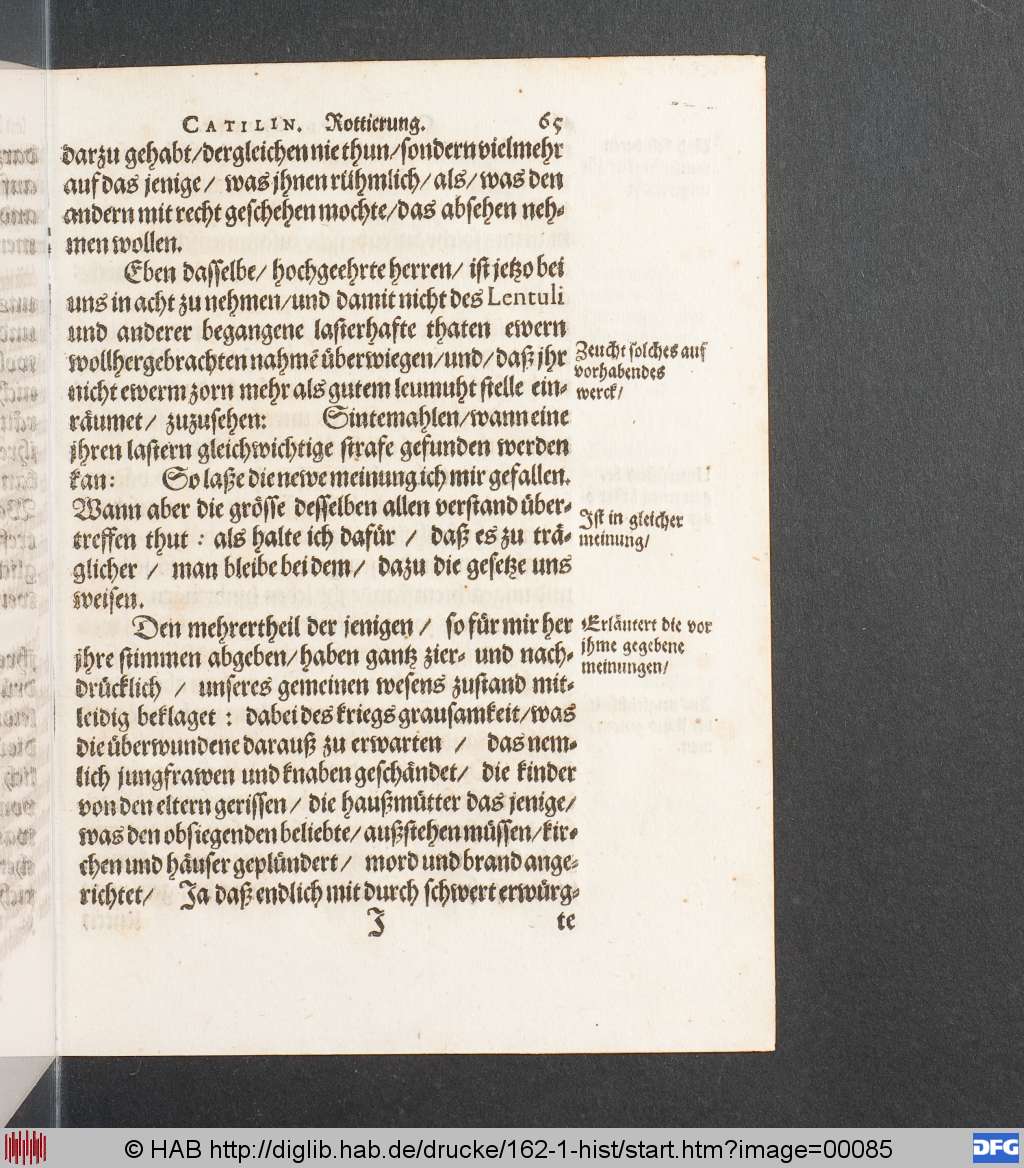 CATILIN. Rottierung. 65
darzu gehabt/dergleichen nie thun/sondern vielmehr
auf das jenige/ was jhnen rühmlich/als/was den
andern mit recht geschehen mochte/das absehen neh-
men wollen.
Eben dasselbe/ hochgeehrte herren/ ist jetzo bei
uns in acht zu nehmen/und damit nicht des Lentuli
und anderer begangene lasterhafte thaten ewern
wollhergebrachten nahmē überwiegen/und/daß jhr
nicht ewerm zorn mehr als gutem leumuht stelle ein-
räumet/ zuzusehen: Sintemahlen/wann eine
jhren lastern gleichwichtige strafe gefunden werden
kan: So laße die newe meinung ich mir gefallen.
Wann aber die grösse desselben allen verstand über-
treffen thut : als halte ich dafür / daß es zu trä-
glicher / man bleibe bei dem/ dazu die gesetze uns
weisen.
Den mehrertheil der jenigen / so für mir her
jhre stimmen abgeben/haben gantz zier- und nach-
drücklich / unseres gemeinen wesens zustand mit-
leidig beklaget : dabei des kriegs grausamkeit/was
die überwundene darauß zu erwarten / das nem-
lich jungfrawen und knaben geschändet/ die kinder
von den eltern gerissen/ die haußmütter das jenige/
was den obsiegenden beliebte/außstehen müssen/kir-
chen und häuser geplündert/ mord und brand ange-
richtet/ Ja daß endlich mit durch schwert erwürg-
J te
Zeucht solches auf
vorhabendes
werck/
Ist in gleicher
meinung/
Erläutert die vor
jhme gegebene
meinungen/
© HAB http://diglib.hab.de/drucke/162-1-hist/start.htm?image=00085
DFG